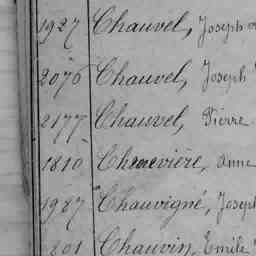 1927 Chauvel, Joseph
2076 Chauvel, Joseph
2177 Chauvel, Pierre
1810 Chenevière, Anne
1987 Chauvigné, Joseph
201 Chauvin, Emile